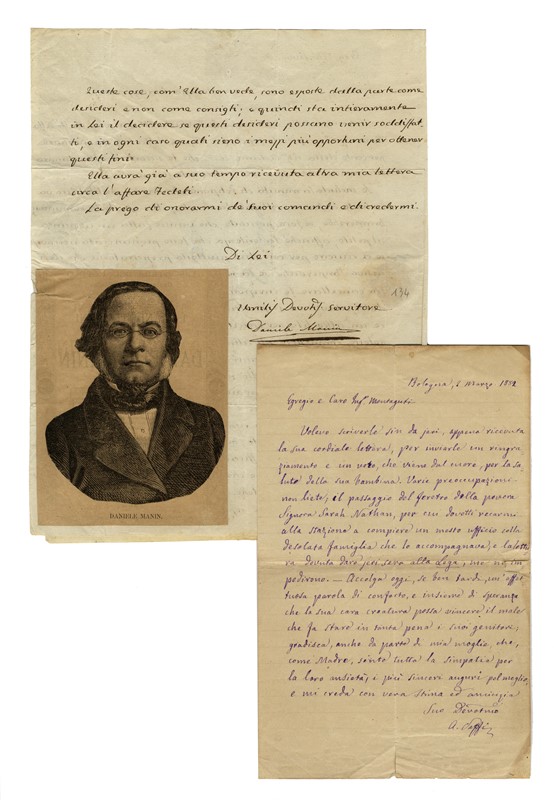 Queste cose, com' Ella ben vede, sono esposte dalla parte come
desideri e non come consigli; e quindi sta intieramente
in Lei il decidere se questi desideri possano venir soddisfat-
ti, e in ogni caso quali sieno i mezzi più opportuni per ottener
questi fini.
Ella avrà già a suo tempo ricevuta altra mia lettera
circa l'affare Fedeli.
La prego di onorarmi de' Suoi comandi e di credermi
Di Lei
134
Umiliss Devotiss Servitore
Daniele Manin
DANIELE MANIN.
Bologna, 2 Marzo 1882
Egregio e Caro Ing.
Volevo scriverle sin da jeri, appena ricevuta
la sua cordiale lettera, per inviarle un ringra-
ziamento e un voto, che viene dal cuore, per la sa-
lute della sua bambina. Varie preoccupazioni
non liete; il passaggio del feretro della povera
Signora Sarah Nathan, per cui dovetti recarmi
alla stazione a compiere un mesto ufficio colla
desolata famiglia che lo accompagnava; e
dovuta dare jersera alla Lega, me
pedirono. — Accolga oggi, se ben tardi, un' affet-
tuosa parola di conforto, e insieme di speranza
che la sua cara creatura possa vincere il male
che fa stare in tanta pena i suoi genitori;
gradisca, anche da parte di mia moglie, che,
come Madre, sente tutta la simpatia per
la loro ansietà, i più sinceri auguri pel meglio,
e mi creda con vera stima ed amicizia
Suo Devotmo
A. Saffi